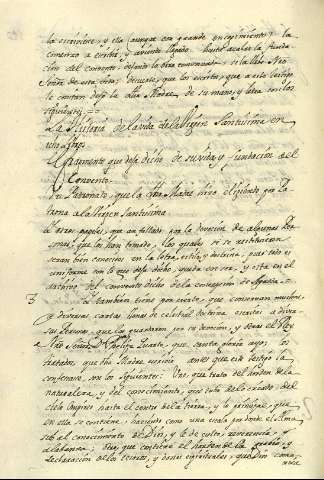 la escriviese, y ella aunque con grande encogimiento la
comenzo a escribir, y aviendo llegado hasta acabar la funda
cion del convento, dejando la obra comenzada
de esta obra; de suerte, que los escritos, que a este tiempo
le constan dejo la Me. Madre de su mano, y letra son los
siguientes =
La Historia de la vida de la Virgen Santissima en
ocho
que dejo dicho de su vida y fundacion del
Convento.
Un Patronato, que la Me. Madre hizo eligiendo por Pa
trona a la Virgen Santissima
otros papeles, que an faltado por la devocion de algunas Per
sonas, que los han tomado, los quales si se restituyeren
seran bien conocidos en la letra, estilo, y materia, pues todo es
uniforme con lo que dejo dicho, queda con su, y esta en el
archivo del convento dicho de la concepcion de Agreda =
3 Y tambien tiene por cierto, que conservan muchos,
y diversas cartas llenas de celestial doctrina escritas a diver
sas Personas, que las guardaron por su devocion, y sobre el Rey
Nro Señor D. Phelipe Quarto, que santa gloria aya; los
tratados, que dha Madre escrivio antes que este testigo la
confesase, son los siguientes: Uno, que trata del orden de la
naturaleza, y del conocimiento, que tubo de lo criado del
cielo empireo hasta el centro de la tierra, y lo principal, que
en ella se contiene, haciendo como una escala por donde el Alma
sube al conocimiento de Dios, y le de culto, reverencia, y
alabanza; otro, que contiene el
declaracion de los secretos, y dones espirituales, que Dios comu
nica